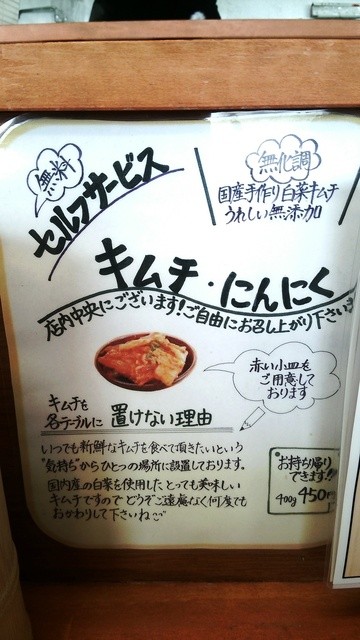 無料
セルフサービス
無化調
国産手作り白菜キムチ
うれしい無添加
キムチ・にんにく
店内中央にございます!ご自由にお召し上がり下さい
赤い小皿を
ご用意して
おります
キムチを
各テーブルに 置けない理由
いつでも新鮮なキムチを食べて頂きたいという
"気持ち"からひとつの場所に設置しております。
国内産の白菜を使用したとっても美味しい
キムチですのでどうぞご遠慮なく何度でも
おかわりして下さいね
お持ち帰り
できます!!
400g 450